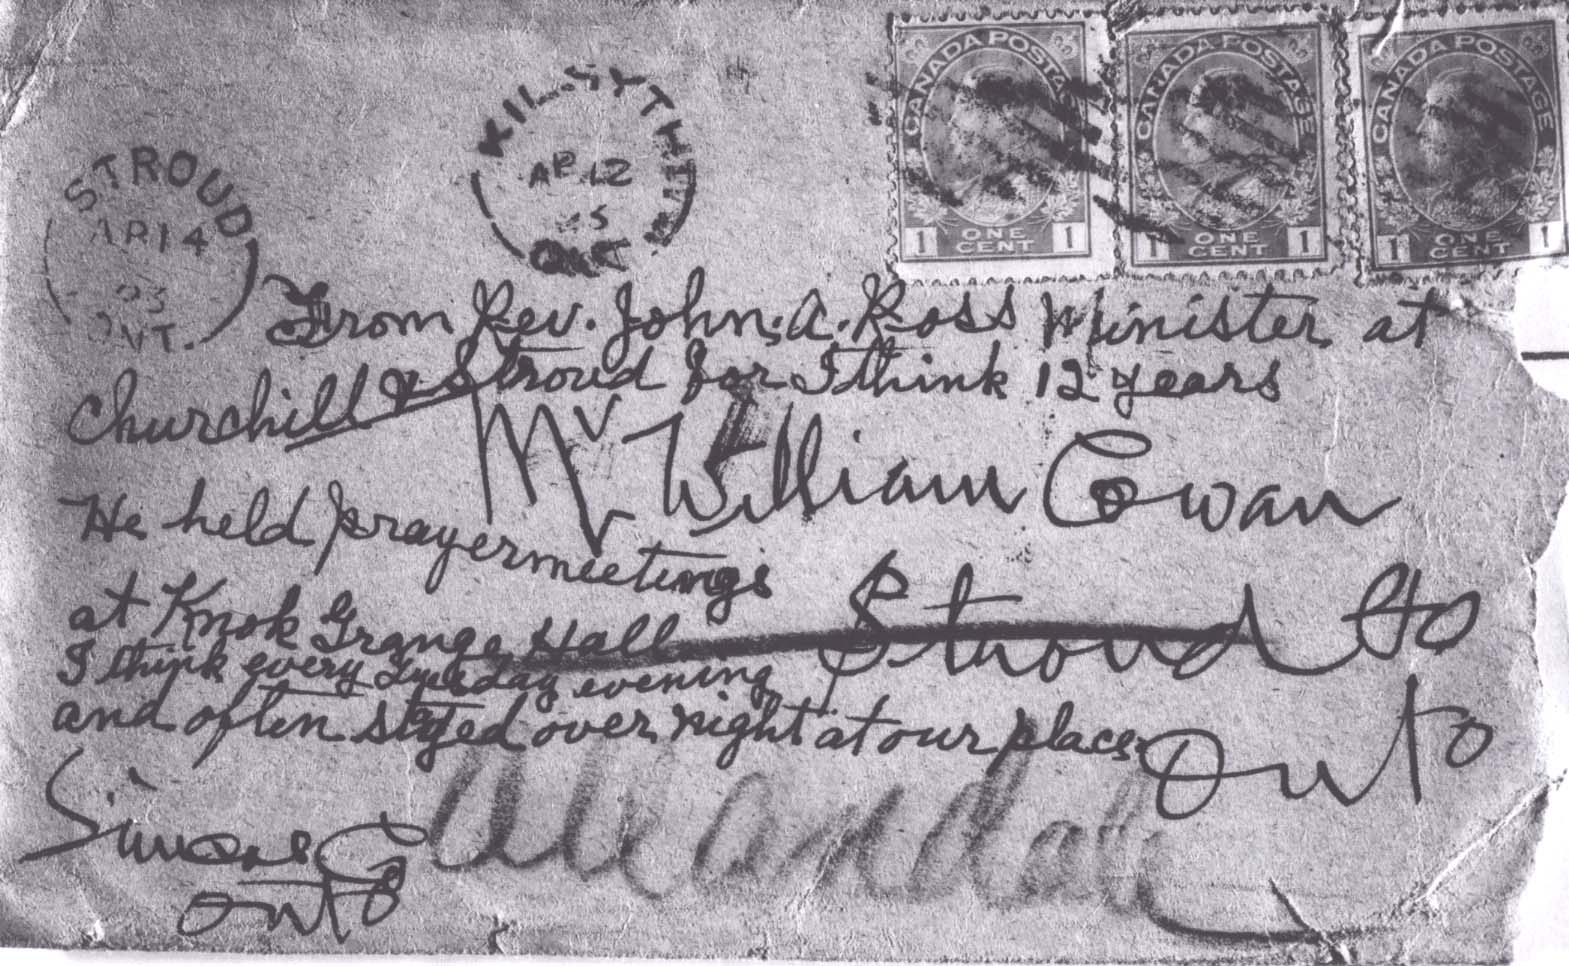 CANADA POSTAGE
ONE CENT
1 1
CANADA POSTAGE
ONE CENT
1 1
CANADA POSTAGE
ONE CENT
1 1
KILSYTH
AP 12
ONT
STROUD
AP 14
23
ONT.
From Rev. John. A. Ross Minister at
Churchill & Stroud for I think 12 years
Mr William Cowan
He held prayermeetings
at Knok Grange Hall
Stroud
I think every evening
and often stayed over night at our place.
Onto
Allandale
Simcoe Co
Onto